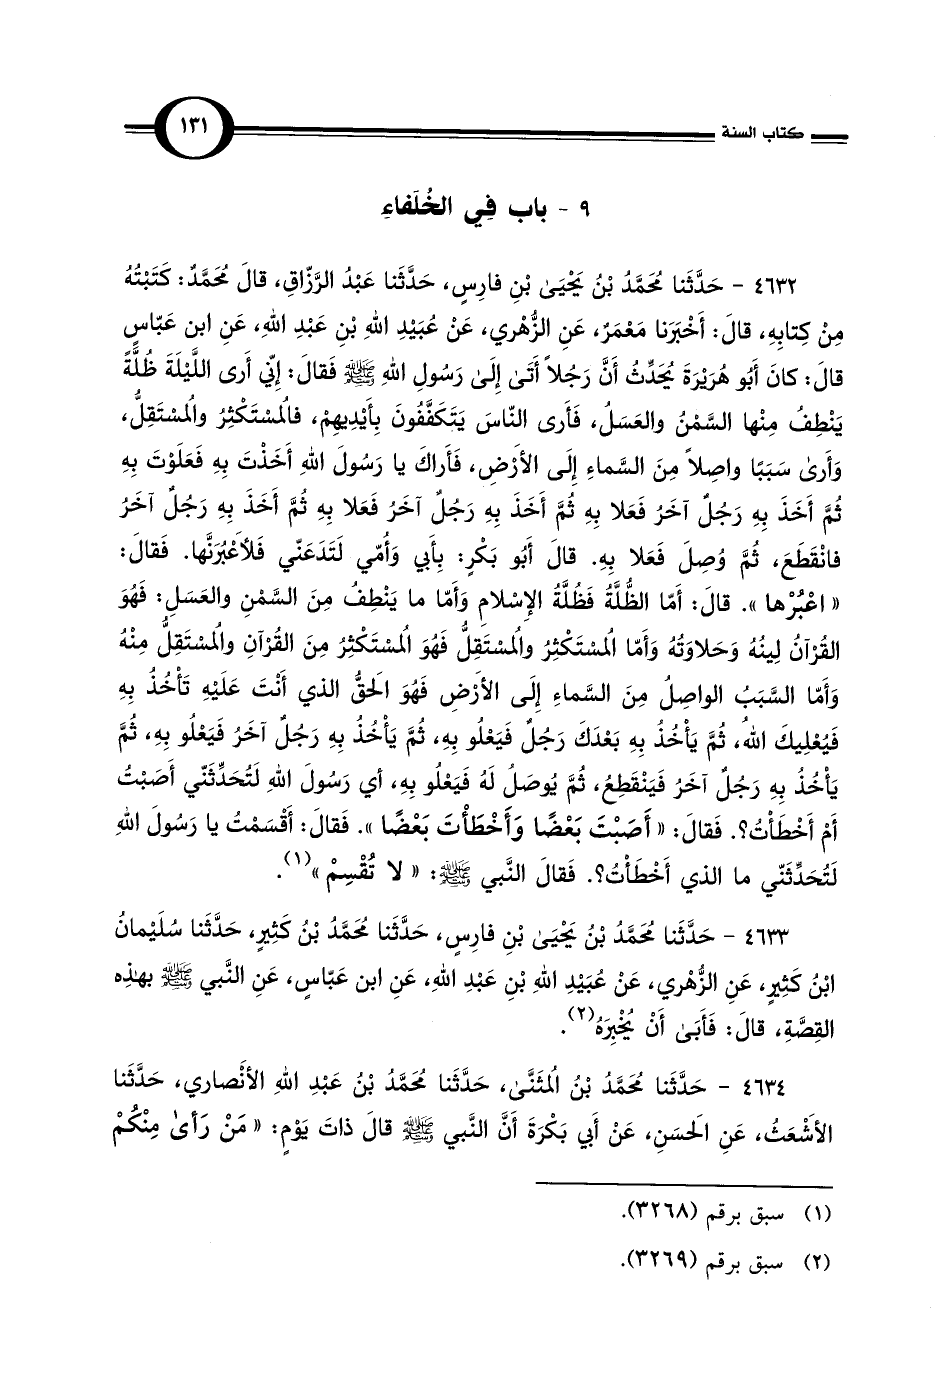 كتاب السنة ١٣١
٩ - باب فِي الخُلَفاءِ
٤٦٣٢ - حَدَّثَنا مُحَمَّدُ بْنُ يَحْيَىٰ بْنِ فارِسٍ، حَدَّثَنا عَبْدُ الرَّزّاقِ، قالَ مُحَمَّدٌ: كَتَبْتُهُ
مِنْ كِتابِهِ، قالَ: أَخْبَرَنا مَعْمَرٌ، عَنِ الزُّهْري، عَنْ عُبَيْدِ اللهِ بْنِ عَبْدِ اللهِ، عَنِ ابن عَبّاسٍ
قالَ: كانَ أَبُو هُرَيْرَةَ يُحَدِّثُ أَنَّ رَجُلاً أَتَىٰ إِلَىٰ رَسُولِ اللهِ ﷺ فَقالَ: إِنّي أَرى اللَّيْلَةَ ظُلَّةً
يَنْطِفُ مِنْها السَّمْنُ والعَسَلُ، فَأَرى النّاسَ يَتَكَفَّفُونَ بِأَيْدِيهِمْ، فالُمسْتَكْثِرُ والُمسْتَقِلُّ،
وَأَرىٰ سَبَبًا واصِلاً مِنَ السَّماءِ إِلَى الأَرْضِ، فَأَراكَ يا رَسُولَ اللهِ أَخَذْتَ بِهِ فَعَلَوْتَ بِهِ
ثُمَّ أَخَذَ بِهِ رَجُلٌ آخَرُ فَعَلا بِهِ ثُمَّ أَخَذَ بِهِ رَجُلٌ آخَرُ فَعَلا بِهِ ثُمَّ أَخَذَ بِهِ رَجُلٌ آخَرُ
فانْقَطَعَ، ثُمَّ وُصِلَ فَعَلا بِهِ. قالَ أَبُو بَكْرٍ: بِأَبي وَأُمّي لَتَدَعَنّي فَلأَعْبُرَنَّها. فَقالَ:
« اعْبُرْها ». قالَ: أَمّا الظُّلَّةُ فَظُلَّةُ الإِسْلامِ وَأَمّا ما يَنْطِفُ مِنَ السَّمْنِ والعَسَلِ: فَهُوَ
القُرْآنُ لِينُهُ وَحَلاوَتُهُ وَأَمّا الُمسْتَكْثِرُ والُمسْتَقِلُّ فَهُوَ الُمسْتَكْثِرُ مِنَ القُرْآنِ والُمسْتَقِلُّ مِنْهُ
وَأَمّا السَّبَبُ الواصِلُ مِنَ السَّماءِ إِلَى الأَرْضِ فَهُوَ الَحقُّ الذي أَنْتَ عَلَيْهِ تَأْخُذُ بِهِ
فَيُعْلِيكَ اللهُ، ثُمَّ يَأْخُذُ بِهِ بَعْدَكَ رَجُلٌ فَيَعْلُو بِهِ، ثُمَّ يَأْخُذُ بِهِ رَجُلٌ آخَرُ فَيَعْلُو بِهِ، ثُمَّ
يَأْخُذُ بِهِ رَجُلٌ آخَرُ فَيَنْقَطِعُ، ثُمَّ يُوصَلُ لَهُ فَيَعْلُو بِهِ، أي رَسُولَ اللهِ لَتُحَدِّثَنّي أَصَبْتُ
أَمْ أَخْطَأْتُ؟. فَقالَ: « أَصَبْتَ بَعْضًا وَأَخْطَأْتَ بَعْضًا ». فَقالَ: أَقْسَمْتُ يا رَسُولَ اللهِ
لَتُحَدِّثَنّي ما الذي أَخْطَأْتُ؟. فَقالَ النَّبي ﷺ: « لا تُقْسِمْ »(١).
٤٦٣٣ - حَدَّثَنا مُحَمَّدُ بْنُ يَحْيَىٰ بْنِ فارِسٍ، حَدَّثَنا مُحَمَّدُ بْنُ كَثِيرٍ، حَدَّثَنا سُلَيْمانُ
ابْنُ كَثِيرٍ، عَنِ الزُّهْري، عَنْ عُبَيْدِ اللهِ بْنِ عَبْدِ اللهِ، عَنِ ابن عَبّاسٍ، عَنِ النَّبي ﷺ بهذِه
القِصَّةِ، قالَ: فَأَبَىٰ أَنْ يُخْبِرَهُ(٢).
٤٦٣٤ - حَدَّثَنا مُحَمَّدُ بْنُ الُمثَنَّىٰ، حَدَّثَنا مُحَمَّدُ بْنُ عَبْدِ اللهِ الأَنْصاري، حَدَّثَنا
الأَشْعَثُ، عَنِ الَحسَنِ، عَنْ أَبي بَكْرَةَ أَنَّ النَّبي ﷺ قالَ ذاتَ يَوْمٍ: « مَنْ رَأىٰ مِنْكُمْ
(١) سبق برقم (٣٢٦٨).
(٢) سبق برقم (٣٢٦٩).